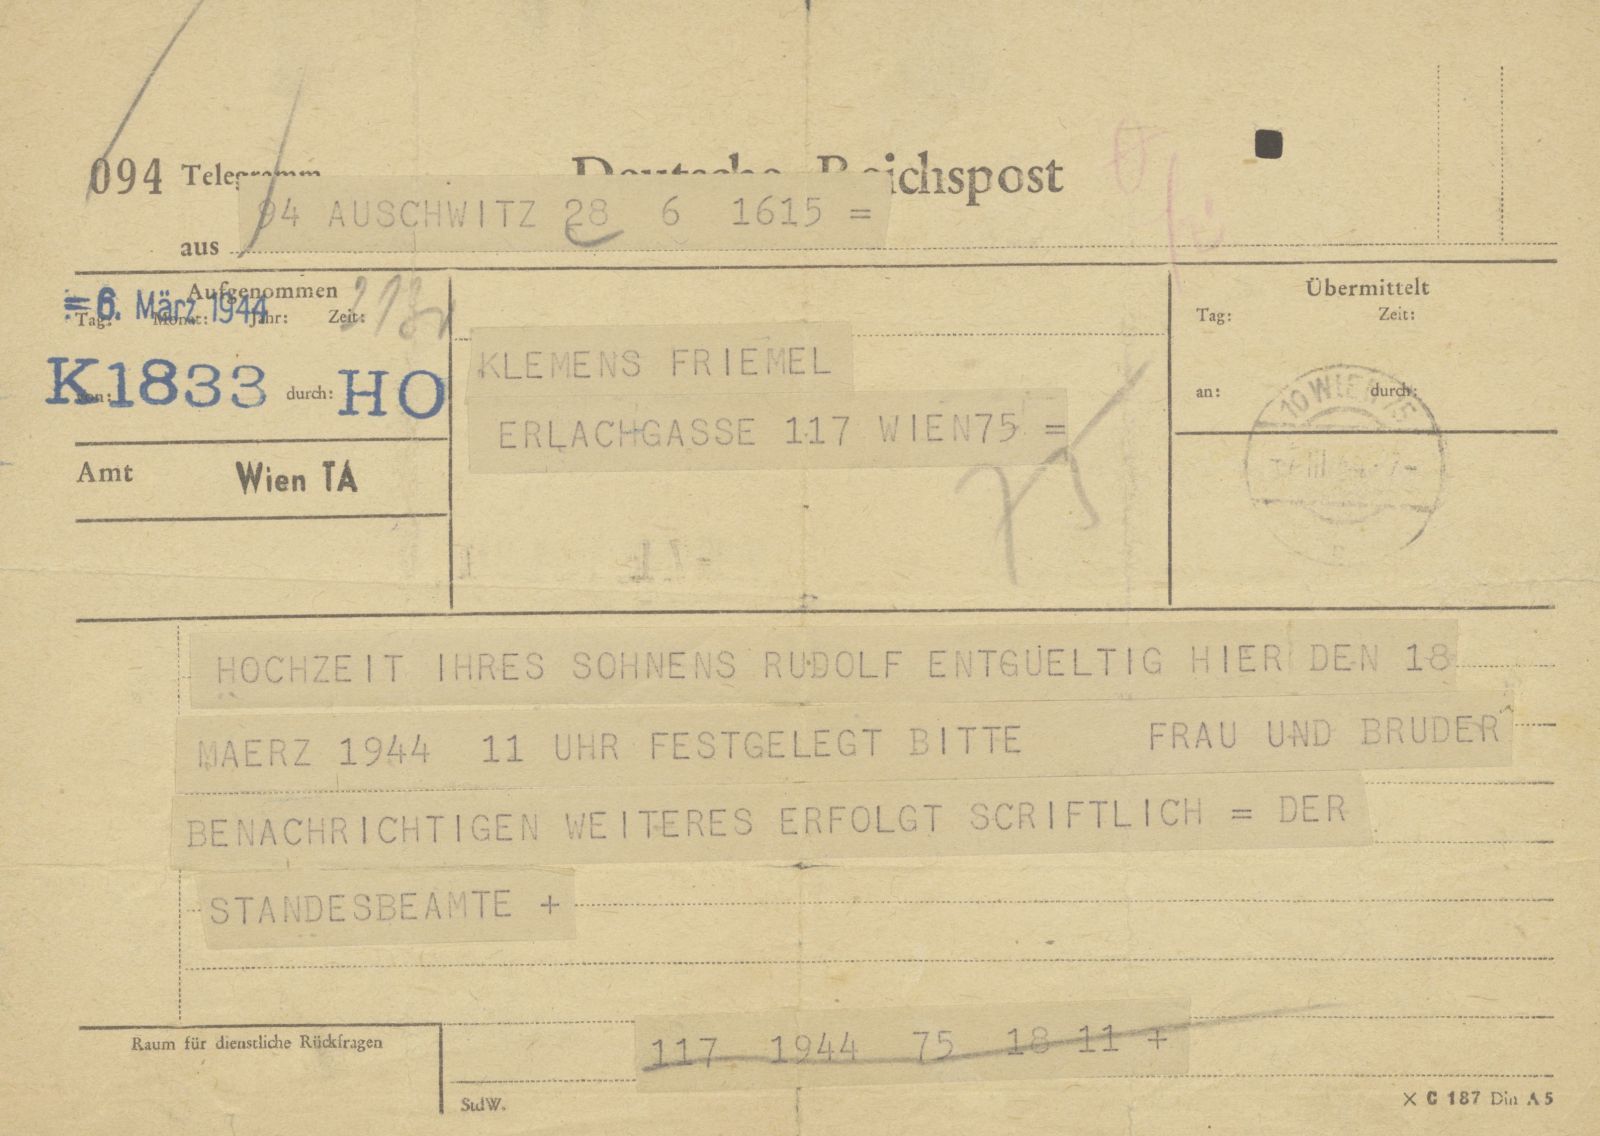 094 Telegramm Deutsche Reichspost
94 AUSCHWITZ 28 6 1615 =
aus
Aufgenommen
=6. März 1944
Tag: Monat: Jahr: Zeit:
K1833 durch: HO
Amt Wien TA
KLEMENS FRIEMEL
ERLACHGASSE 117 WIEN75 =
75
Übermittelt
Tag: Zeit:
an: durch:
10 WIEN 75
HOCHZEIT IHRES SOHNENS RUDOLF ENTGUELTIG HIER DEN 18
MAERZ 1944 11 UHR FESTGELEGT BITTE FRAU UND BRUDER
BENACHRICHTIGEN WEITERES ERFOLGT SCRIFTLICH = DER
STANDESBEAMTE +
Raum für dienstliche Rückfragen
117 1944 75 18 11 +
StdW.
× C 187 Din A5